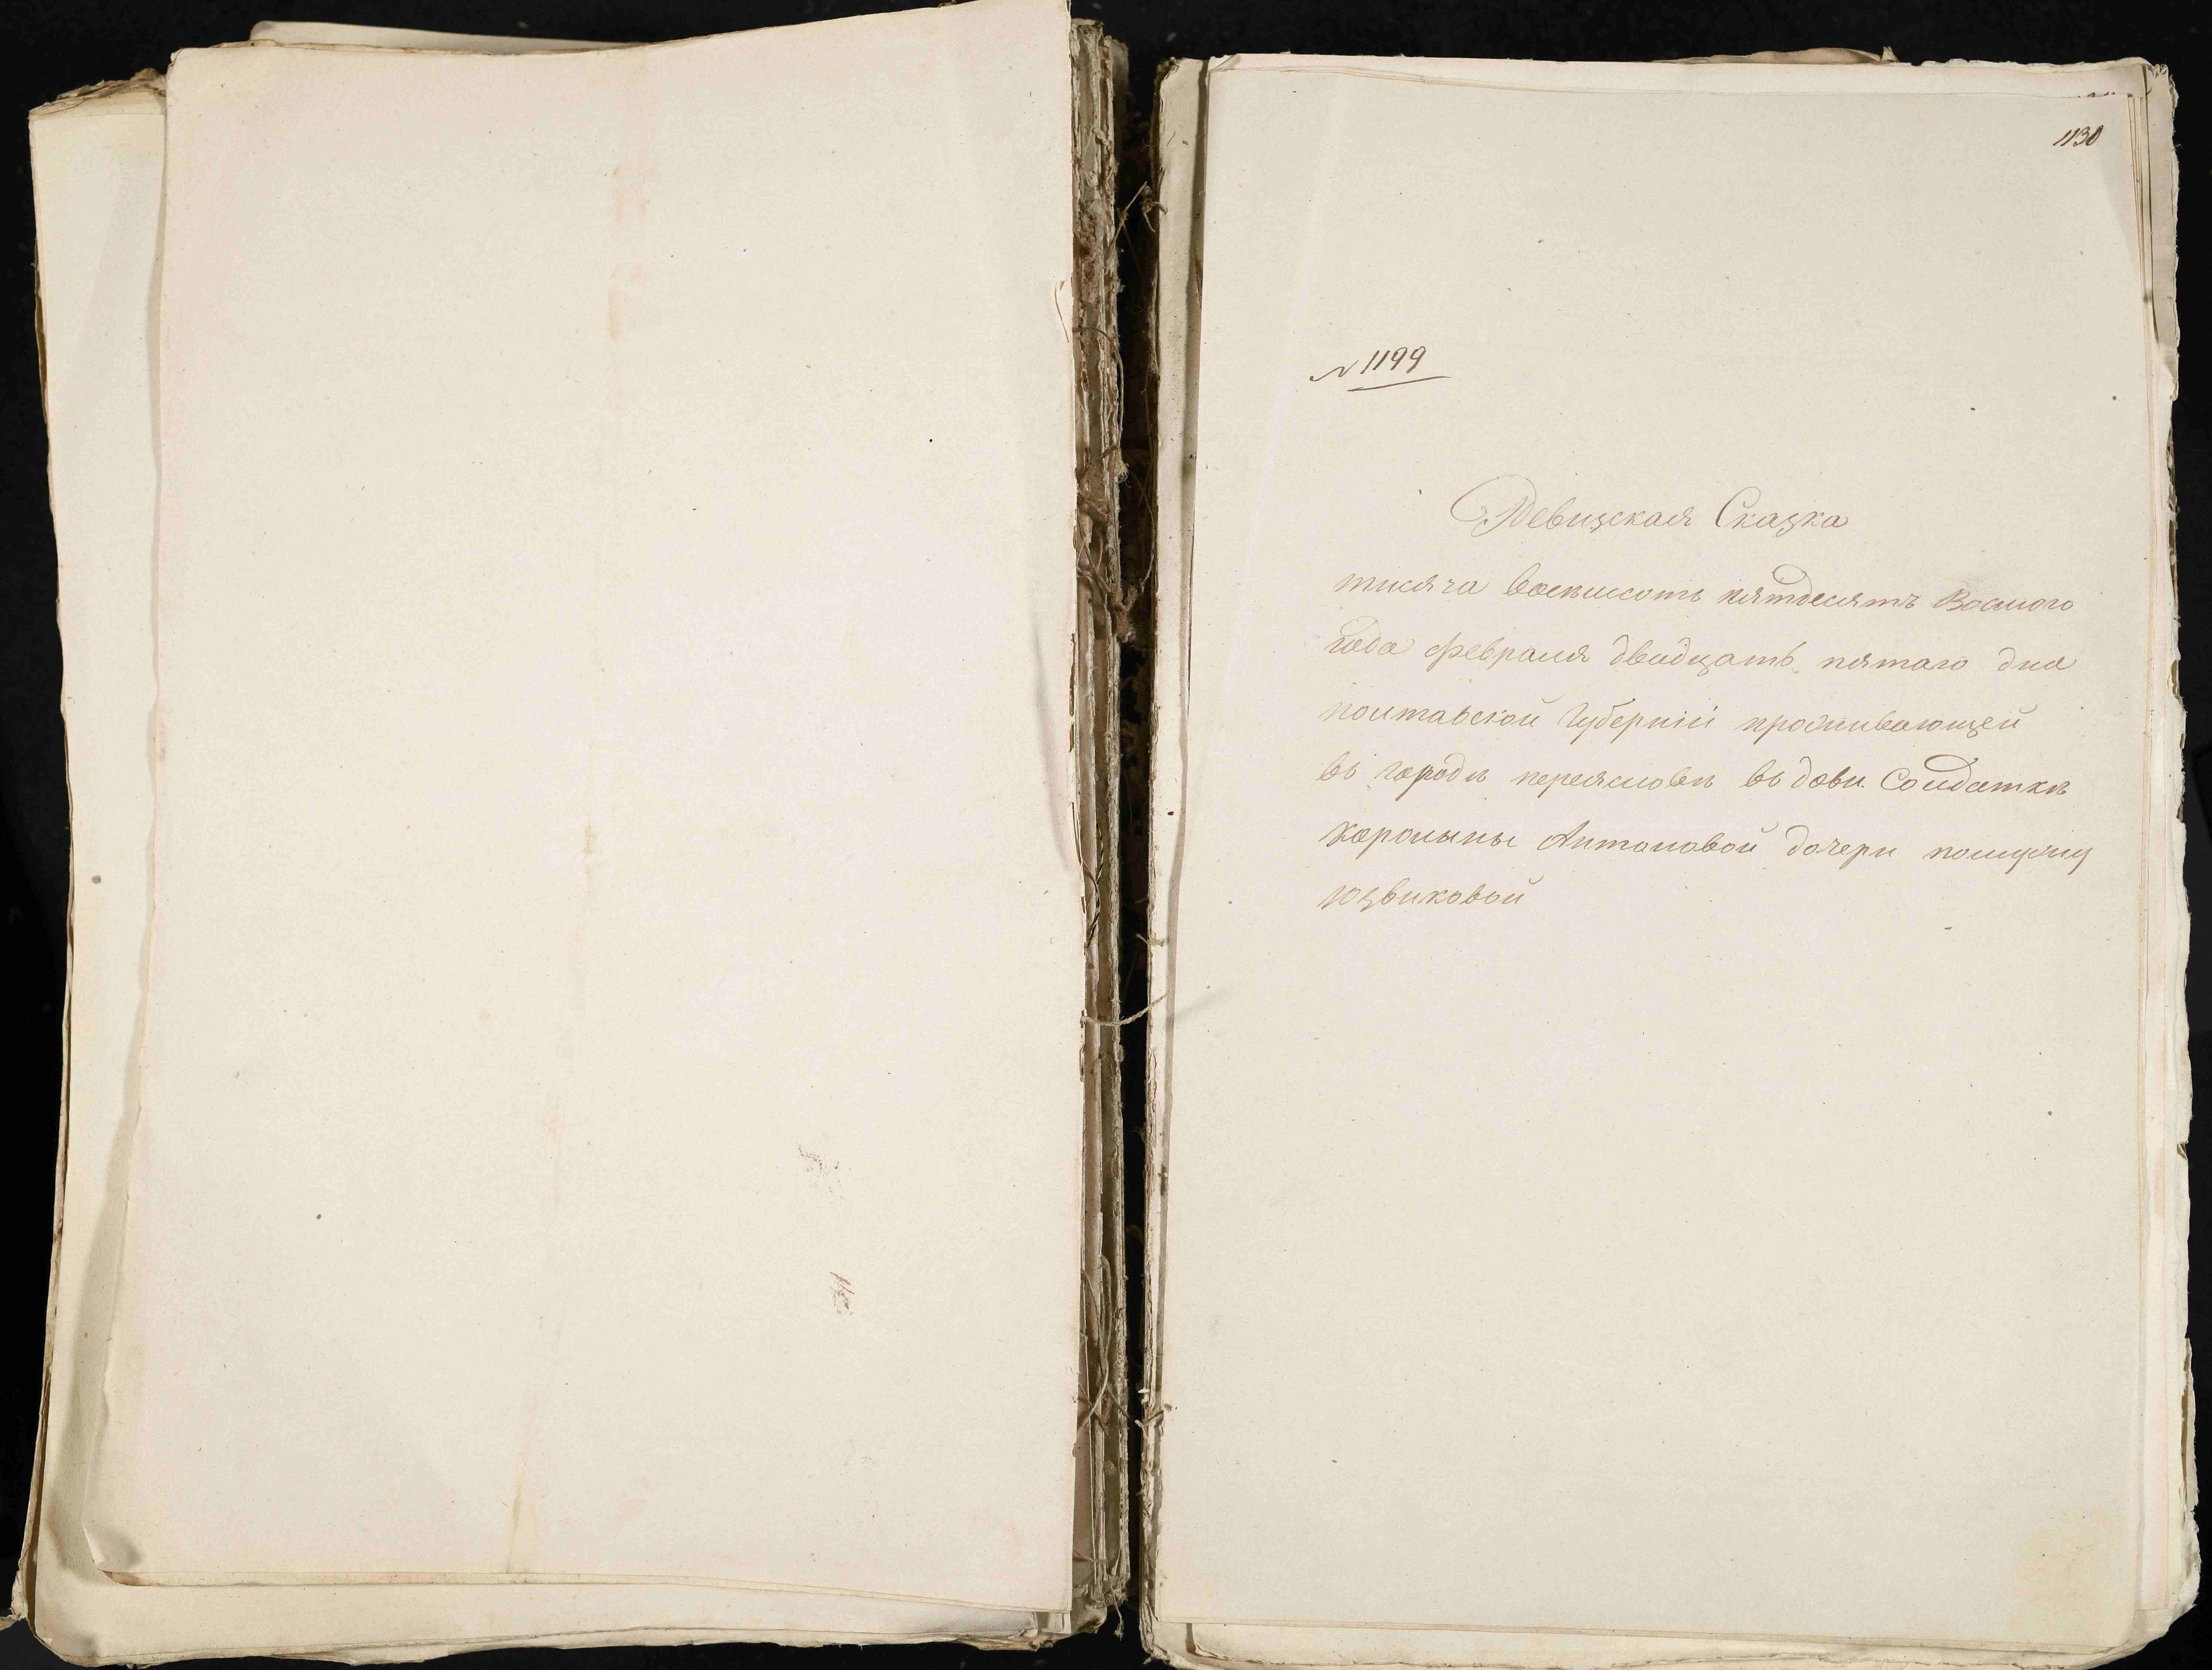 1130
№ 1199
Ревизская Сказка
тисяча восемсотъ пятдесятъ Восмого
года февраля двадцать пятаго дня
полтавской Губерніи проживающей
въ городѣ переясловѣ въдови Солдатки
Антоновой дочери по мужу
юзвиковой